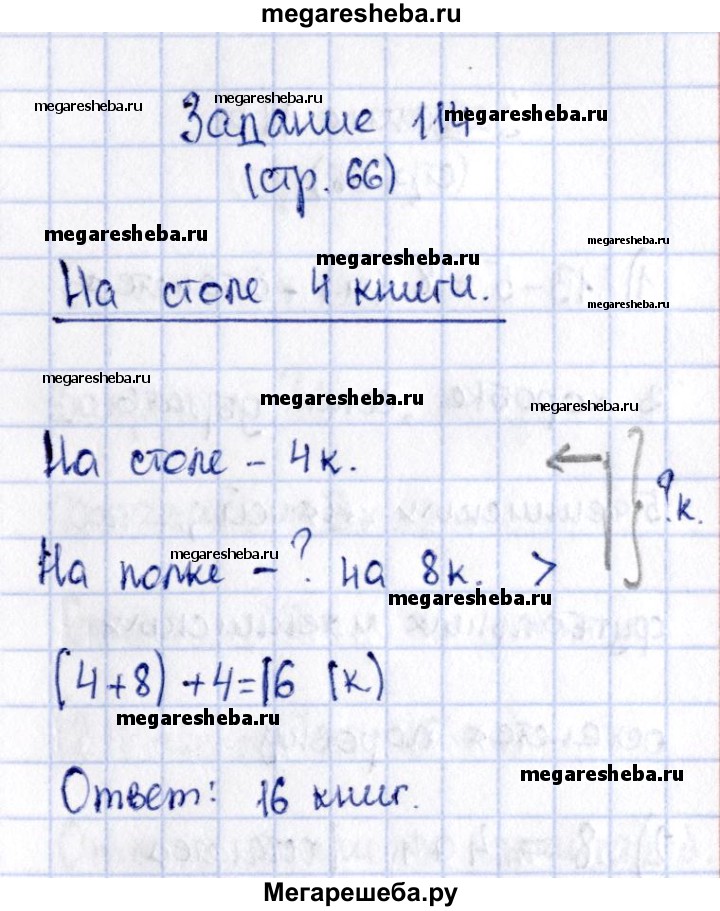 megaresheba.ru
megaresheba.ru megaresheba.ru megaresheba.ru
Задание 114
(стр. 66)
megaresheba.ru megaresheba.ru
megaresheba.ru
На столе 4 книги.
megaresheba.ru megaresheba.ru megaresheba.ru
На столе - 4 к.
?к.
megaresheba.ru
На полке - ? на 8 к. >
megaresheba.ru
(4+8)+4=16 (к)
megaresheba.ru
megaresheba.ru
Ответ: 16 книг.
Мегарешеба.ру